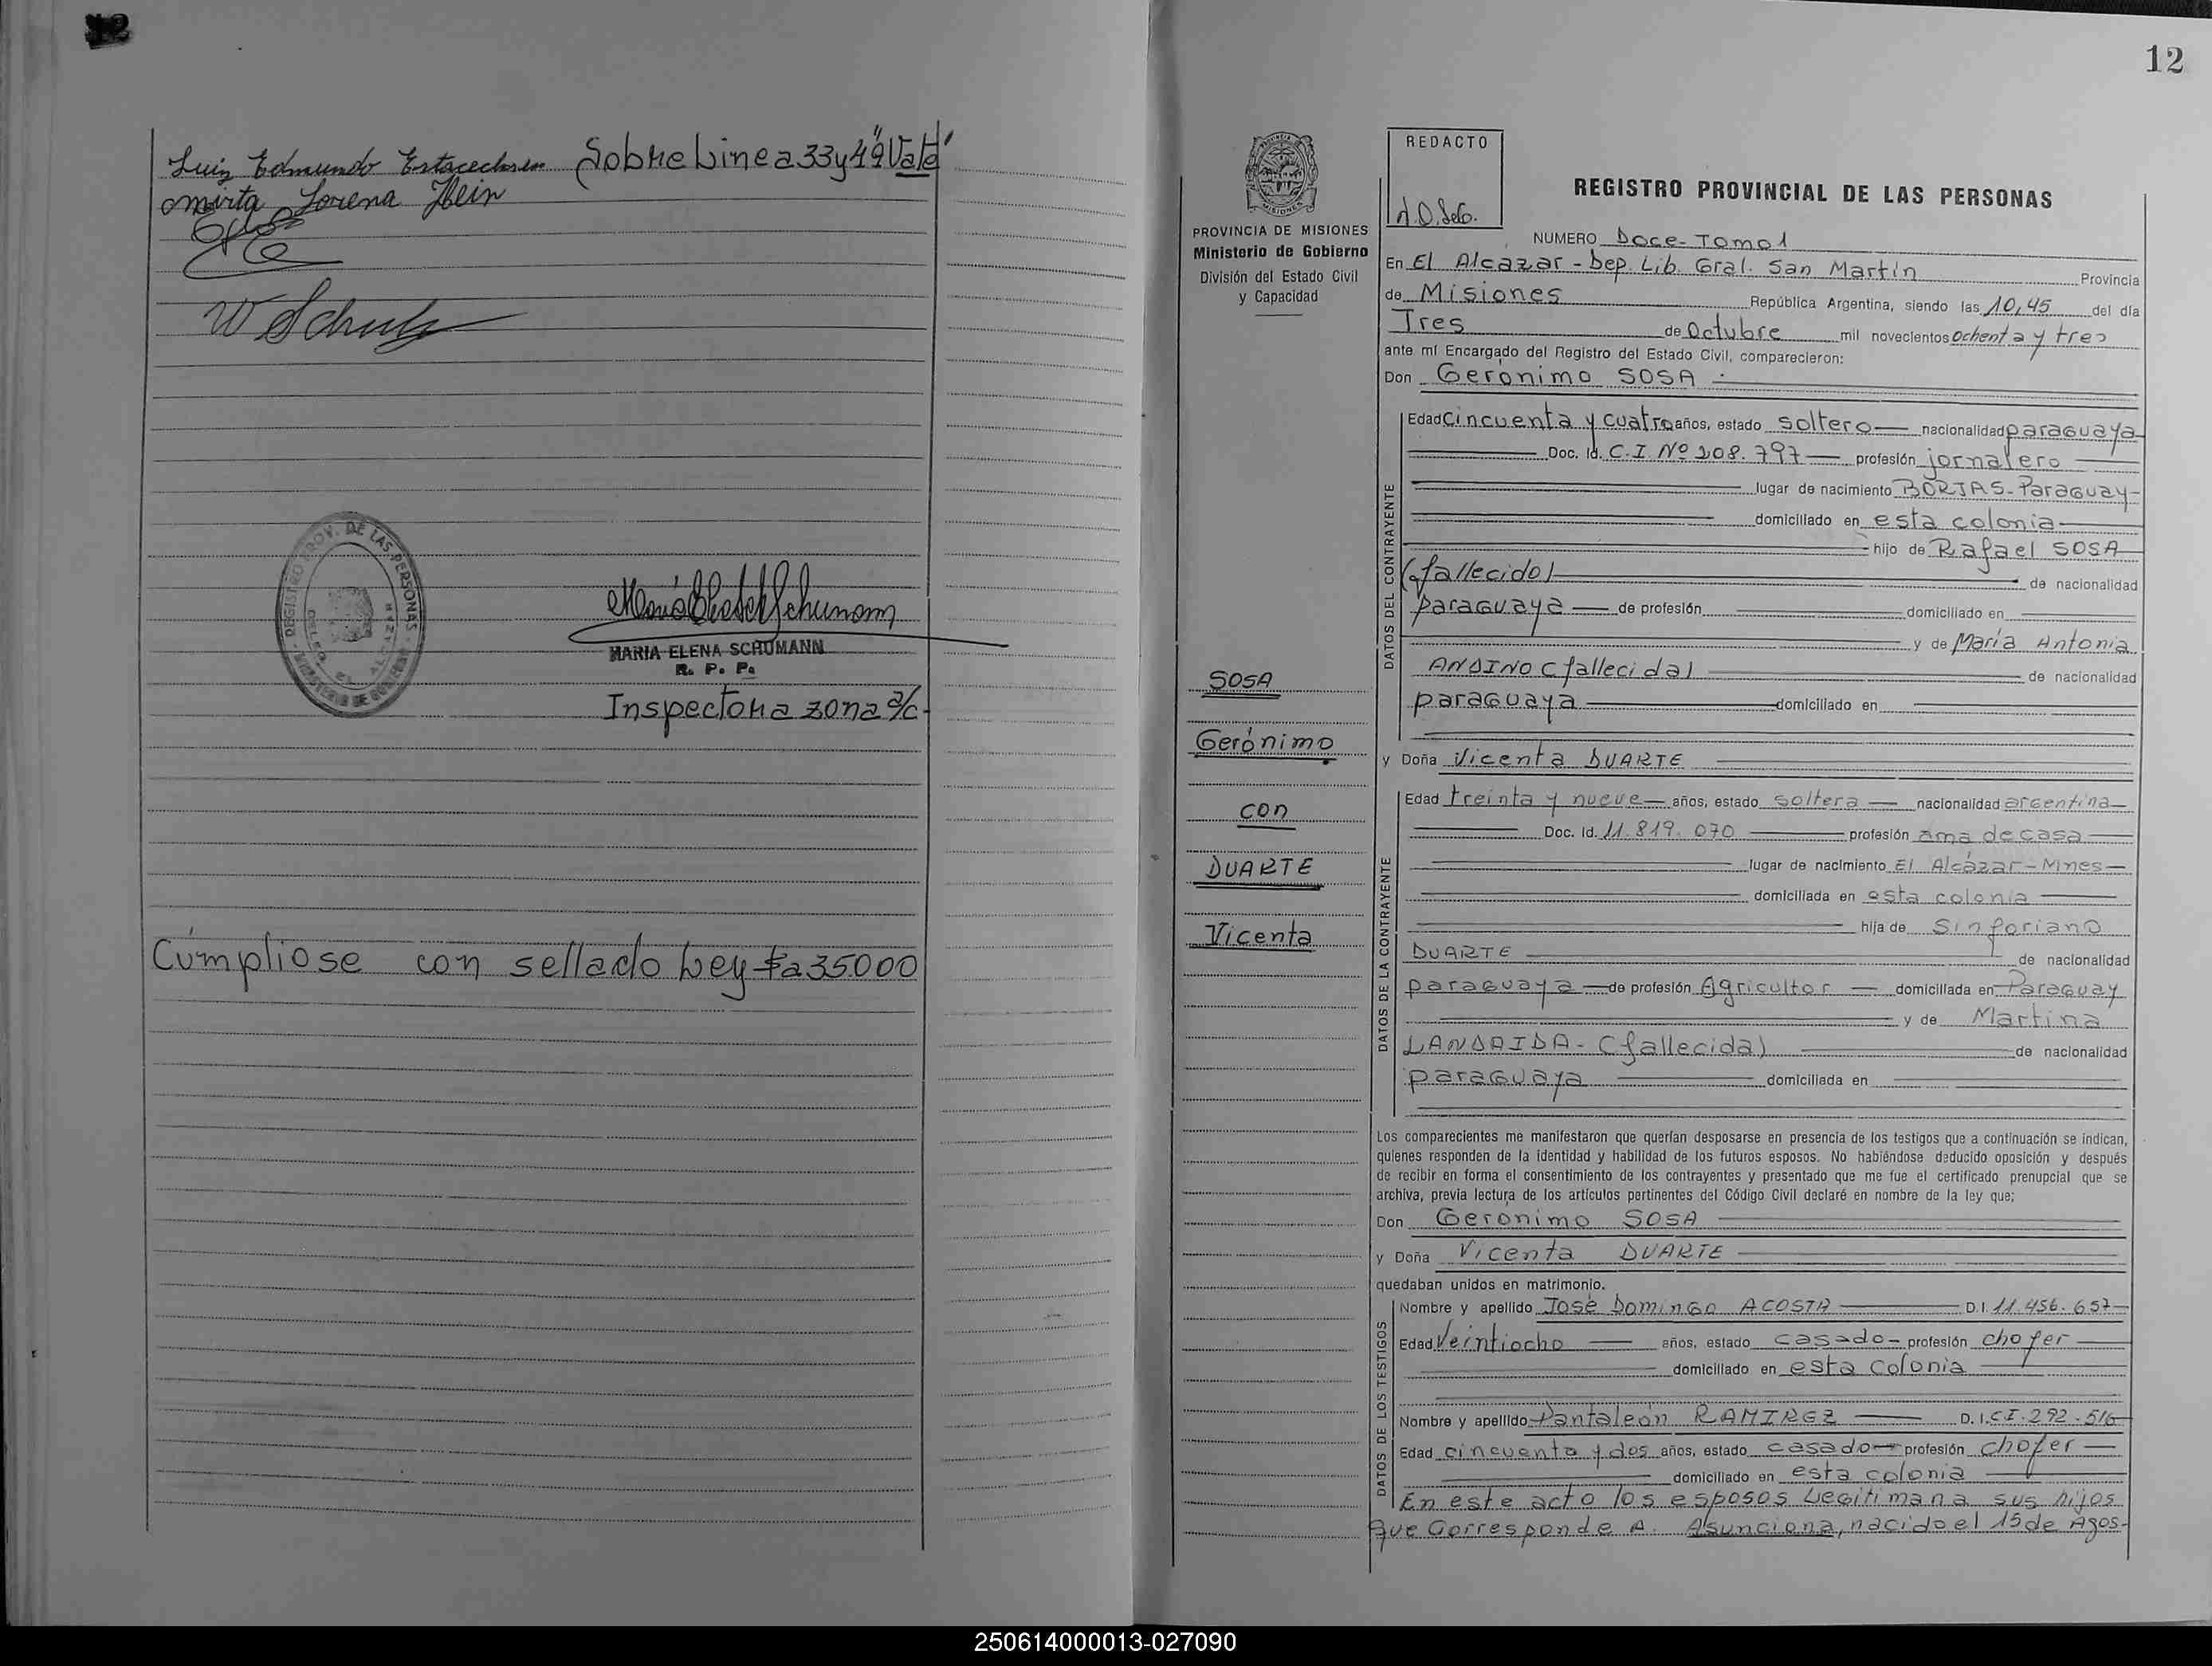 12
Luis Edmundo Sobre Linea 33 y 4ª "Vale"
Lorena Hein
W Schulz
REGISTRO PROV. DE LAS PERSONAS
MARIA ELENA SCHUMANN
R. P. P.
Inspectora zona a/c.
Cúmpliose con sellado Ley $a 35000
12
PROVINCIA DE MISIONES
Ministerio de Gobierno
División del Estado Civil
y Capacidad
SOSA
Gerónimo
con
DUARTE
Vicenta
REDACTO
REGISTRO PROVINCIAL DE LAS PERSONAS
NUMERO Doce - Tomo 1
En El Alcazar - Dep. Lib. Gral. San Martin Provincia
de Misiones República Argentina, siendo las 10,45 del día
Tres de Octubre mil novecientos ochenta y tres
ante mí Encargado del Registro del Estado Civil, comparecieron:
Don Gerónimo SOSA
DATOS DEL CONTRAYENTE
Edad Cincuenta y cuatro años, estado soltero nacionalidad paraguaya
Doc. Id. C.I Nº 208.797 profesión jornalero
lugar de nacimiento BORJAS - Paraguay
domiciliado en esta colonia
hijo de Rafael SOSA
(fallecido) de nacionalidad
paraguaya de profesión domiciliado en
y de María Antonia
ANDINO (fallecida) de nacionalidad
paraguaya domiciliado en
y Doña Vicenta DUARTE
DATOS DE LA CONTRAYENTE
Edad treinta y nueve años, estado soltera nacionalidad argentina
Doc. Id. 11.819.070 profesión ama de casa
lugar de nacimiento El Alcázar - Mnes
domiciliada en esta colonia
hija de Sinforiano
DUARTE de nacionalidad
paraguaya de profesión Agricultor domiciliada en Paraguay
y de Martina
LANDAIDA - (fallecida) de nacionalidad
paraguaya domiciliada en
Los comparecientes me manifestaron que querían desposarse en presencia de los testigos que a continuación se indican,
quienes responden de la identidad y habilidad de los futuros esposos. No habiéndose deducido oposición y después
de recibir en forma el consentimiento de los contrayentes y presentado que me fue el certificado prenupcial que se
archiva, previa lectura de los artículos pertinentes del Código Civil declaré en nombre de la ley que;
Don Gerónimo SOSA
y Doña Vicenta DUARTE
quedaban unidos en matrimonio.
DATOS DE LOS TESTIGOS
Nombre y apellido José Domingo ACOSTA D.I. 11.456.657
Edad Veintiocho años, estado casado profesión chofer
domiciliado en esta colonia
Nombre y apellido Pantaleón RAMIREZ D.I. C.I. 292.516
Edad cincuenta y dos años, estado casado profesión chofer
domiciliado en esta colonia
En este acto los esposos Legitiman a sus hijos
que Corresponde A. Asunciona, nacido el 15 de Agos-
250614000013-027090